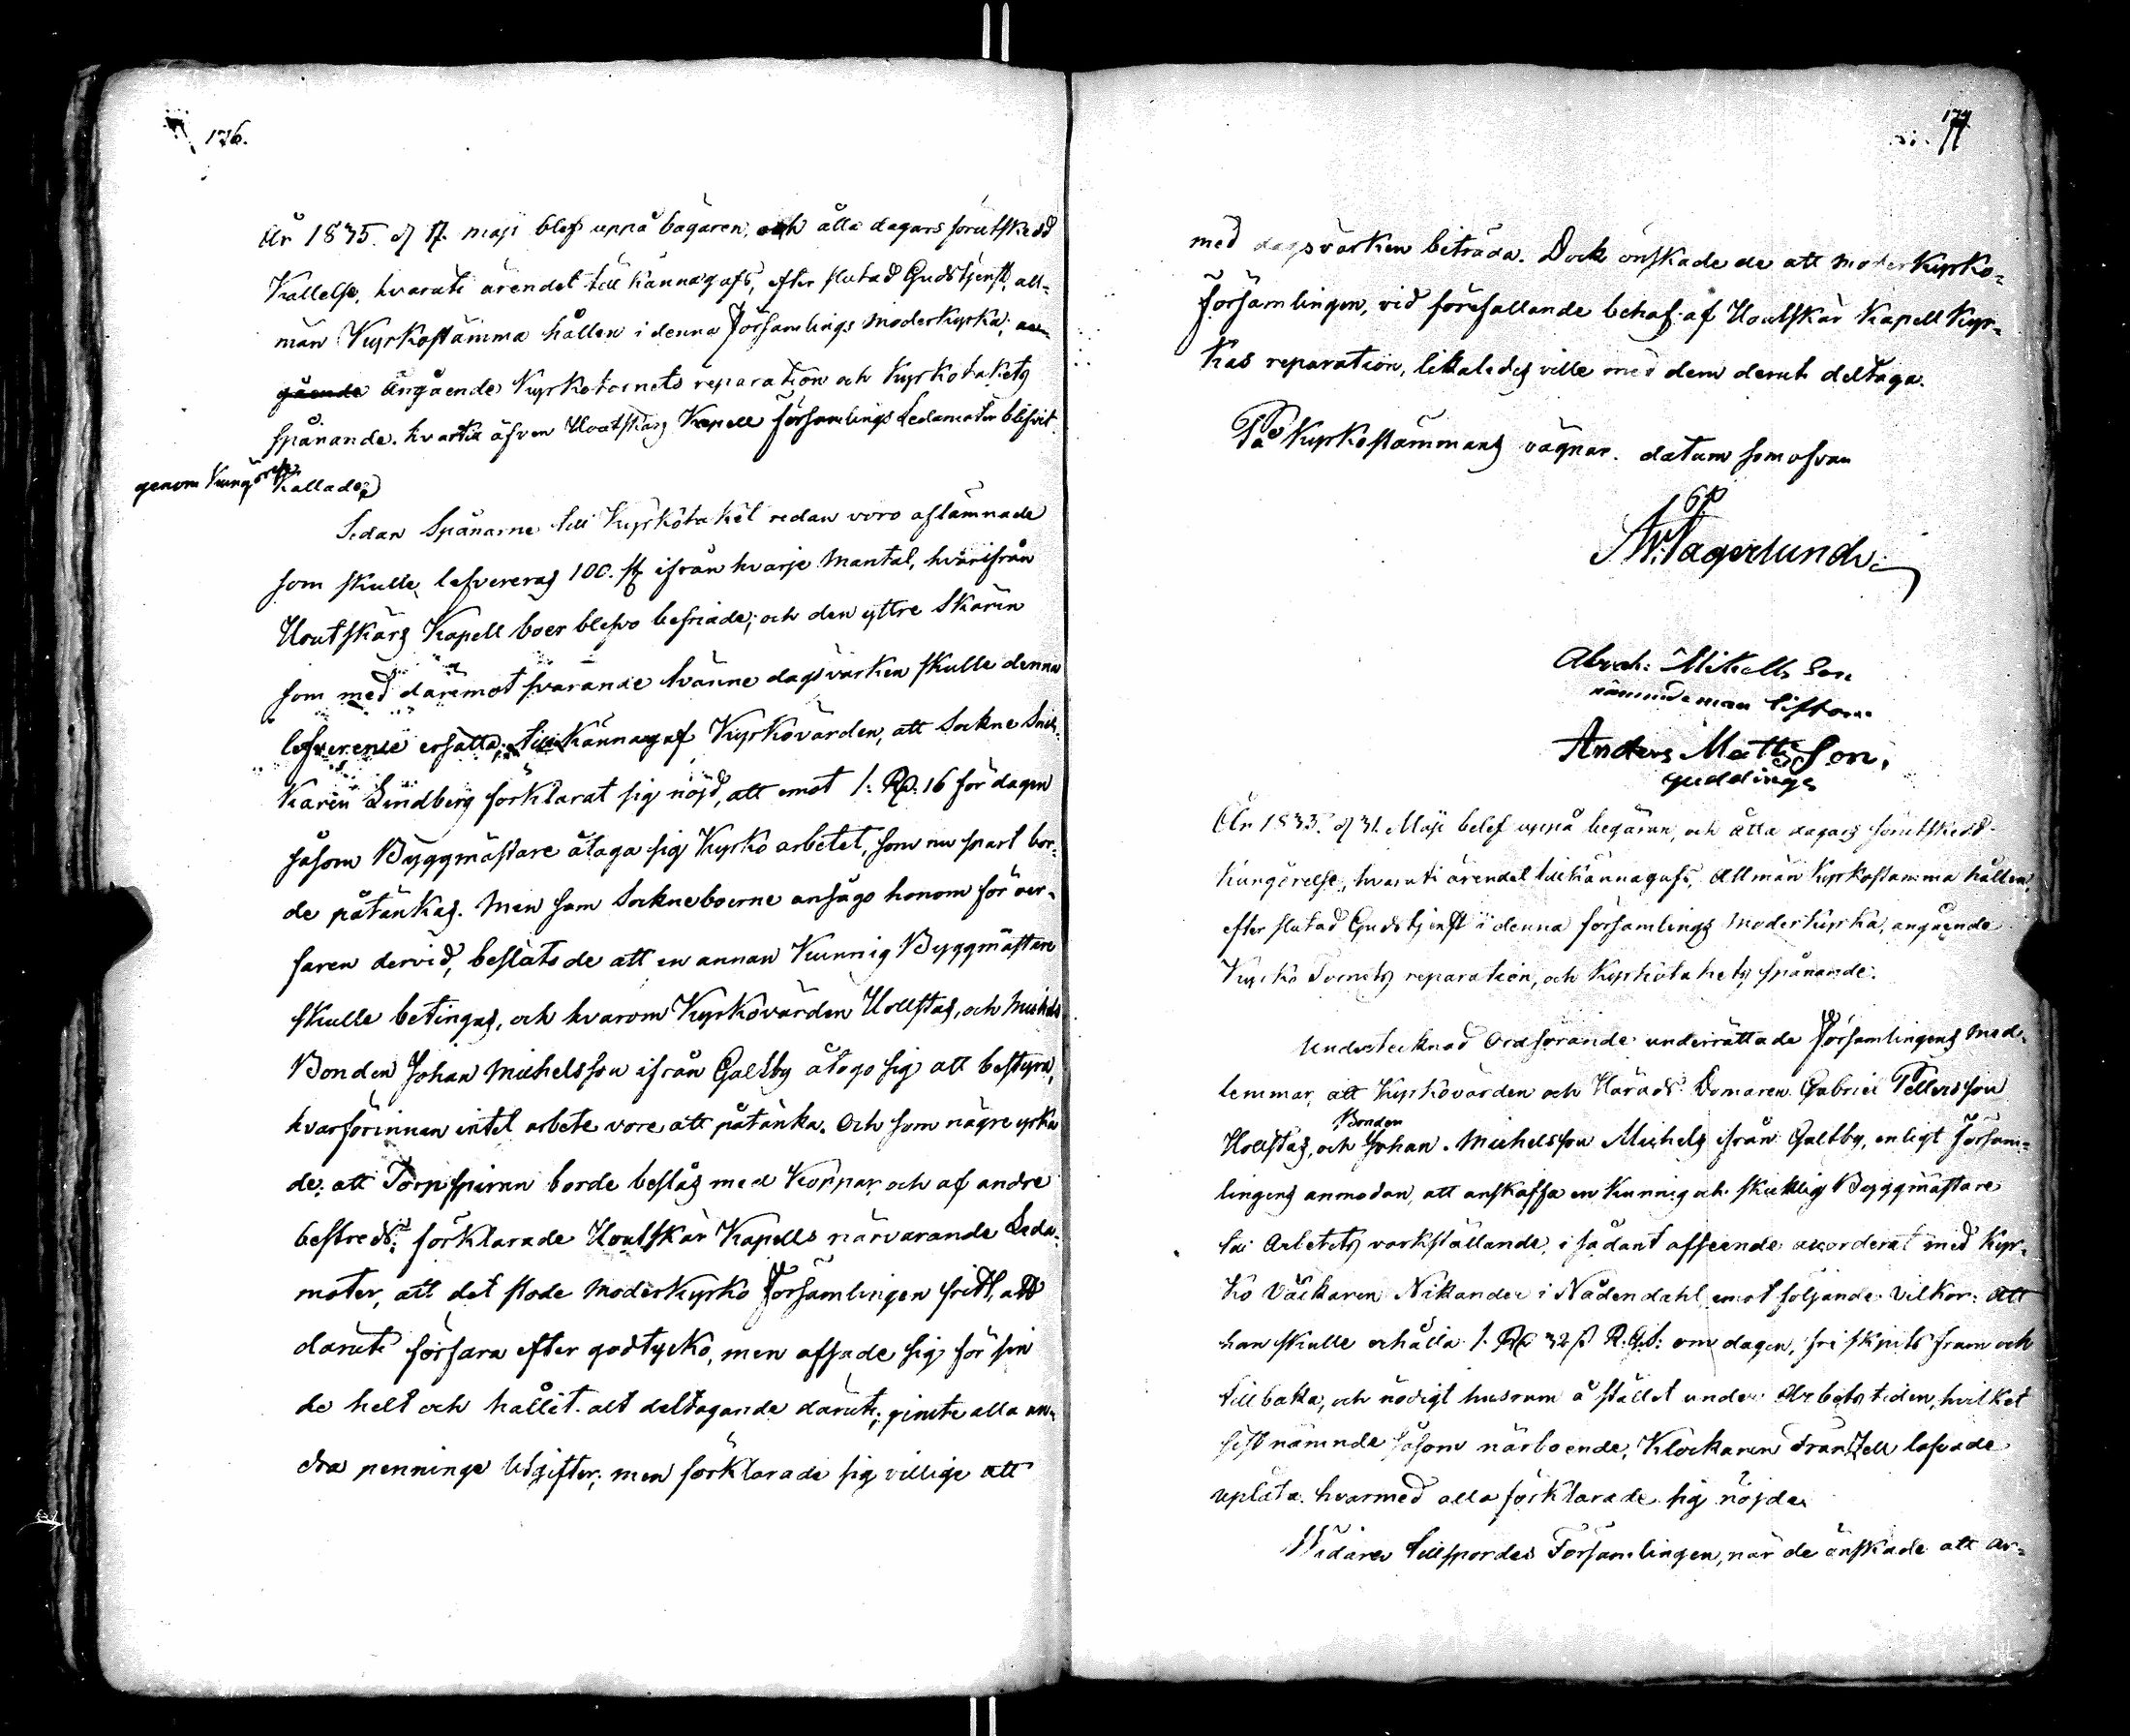 176.
År 1835. d 17. maji blef uppå bägären, och åtta dagars förutskedd
Kallelse, hvaruti ärendet till känna gafs, efter slutad Gudstjenst, all-
män Kyrkostämma hållen i denna Församlings Moderkyrka, an-
gående angående Kyrkotornets reparation och Kyrkotakets
spånande. hvartil äfven Houtskärs Kapell Församlings Ledamöter blifvit
genom Kungörelse Kallade.
Sedan Spånarne till Kyrkotaket redan voro aflämnade
som skulle lefvereras 100. st ifrån hvarje Mantal, hvarifrån
Houtskärs Kapell boer blefvo befriade; och den yttre Skären
som med däremot svarande tvänne dagsvärken skulle denna
lefverence ersätta, tillkännagaf Kyrkovärden, att Sockne Snic-
karen Lindberg förklarat sig nöjd, att emot 1. Rd. 16 för dagen
såsom Byggmästare åtaga sig Kyrko arbetet, som nu snart bor-
de påtänkas. Men som Sockneboerne ansågo honom för oer-
faren dervid, beslöts de att en annan Kunnig Byggmästare
skulle betingas, och hvarom Kyrkovärden Hollstas, och Michels
Bonden Johan Michelsson ifrån Galtby åtogo sig att bestyra,
hvarförinnan intet arbete vore att påtänka. Och som någre yrka
de, att Tornspiran borde beslås med Koppar, och af andre
bestreds; förklarade Houtskär Kapells närvarande Leda-
moter, att det stode Moderkyrko Församlingen fritt, att
däruti förfara efter godtycko, men afsade sig för sin
de helt och hållit alt deltagande däruti, genete alla an-
dra penninge Utgifter; men förklarade sig villige att
177
med dagsvärken biträda. Dock önskade de att moderkyrko-
församlingen, vid förefallande behof af Houtskär Kapell Kyr-
kas reparation, likaledes ville med dem deruti deltaga.
På Kyrkostämmans vägnar. datum som ofvan
A W: Fagerlund
Abrah: Mikells Son
nämndeman Tiftom
Anders Matts Son,
guddings
År 1835. d 31. Maji belef uppå begäran, och åtta dagars förutskedd
Kungörelse, hvaruti ärendet tillkännagafs, Allmän Kyrkostämma hållen,
efter slutad Gudstjenst i denna församlings Moderkyrka, angående
Kyrko Tornets reparation, och Kyrkotakets spånande.
Undertecknad Ordförande underrättade Församlingens Med-
lemmar, att Kyrkovärden och Härads Domaren Gabriel Tellersson
Hollstas, och Bonden Johan Michelsson Michels ifrån Galtby, enligt Försam-
lingens anmodan, att anskaffa en Kunnig och skicklig Byggmästare
till Arbetets värkställande, i sådant afseende accorderat med Kyr-
ko Väckaren Nikander i Nådendahl emot följande Vilkor: Att
han skulle erhålla 1. Rd 32 s R.G.S: om dagen, fri skjuts fram och
tillbaka, och nödigt husrum å stället under Arbets tiden, hvilket
sist nämnde såsom närboende, Klockaren Frantzell lofvade
uplåta. hvarmed alla förklarade sig nöjda.
Widare tillspordes Församlingen, när de önskade att ar-